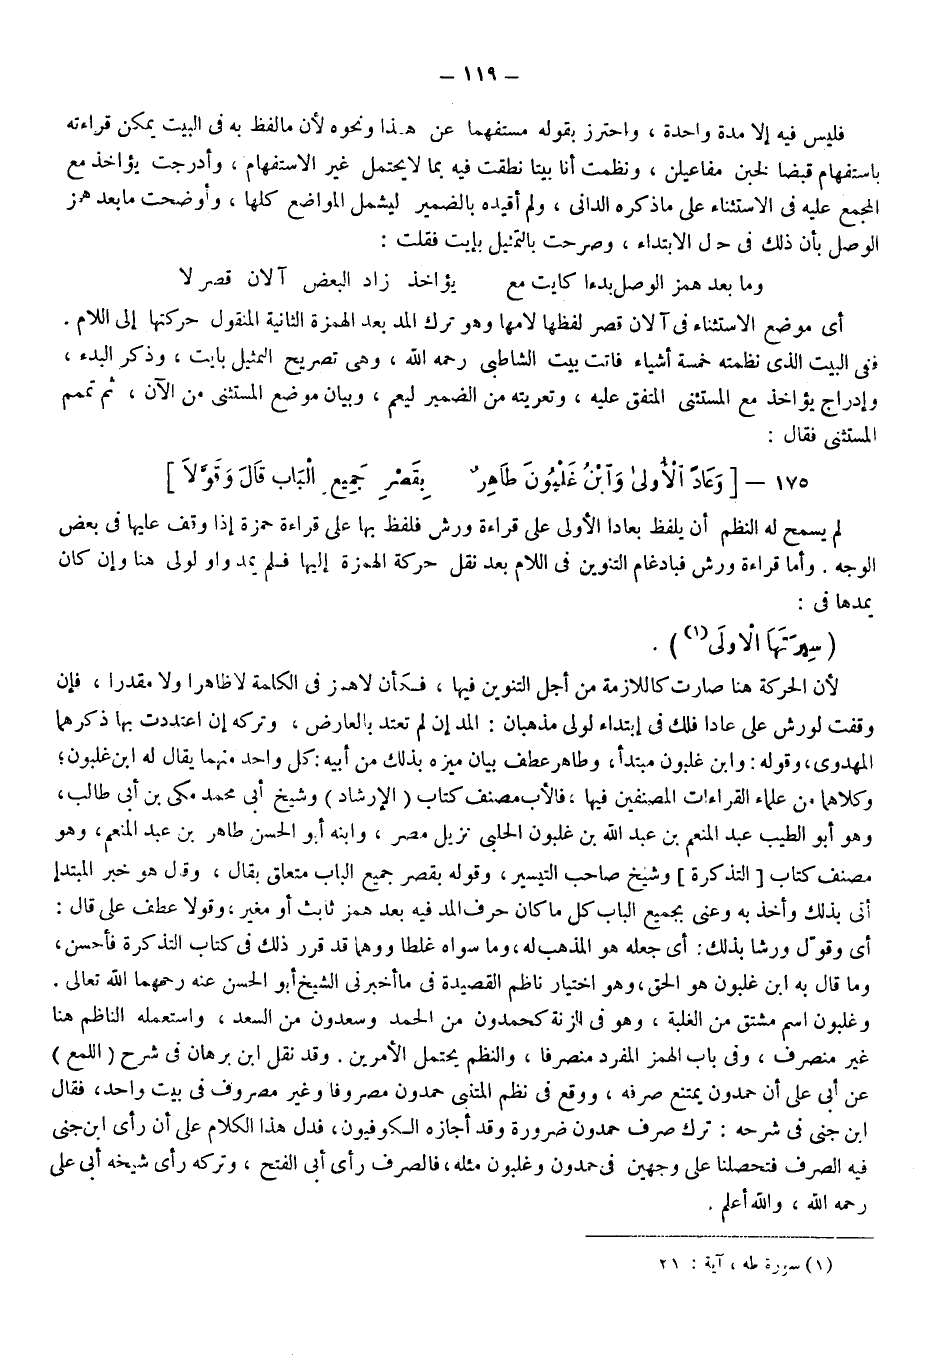 – ١١٩ –
فليس فيه إلا مدة واحدة ، واحترز بقوله مستفهما عن هذا ونحوه لأن مالفظ به فى البيت يمكن قراءته
باستفهام قبضا لخبن مفاعيلن ، ونظمت أنا بيتا نطقت فيه بما لايحتمل غير الاستفهام ، وأدرجت يؤاخذ مع
المجمع عليه فى الاستثناء على ماذكره الدانى ، ولم أقيده بالضمير ليشمل المواضع كلها ، وأوضحت مابعد همز
الوصل بأن ذلك فى حال الابتداء ، وصرحت بالتمثيل بإيت فقلت :
وما بعد همز الوصل بدءا كايت مع يؤاخذ زاد البعض آلان قصر لا
أى موضع الاستثناء فى آلان قصر لفظها لامها وهو ترك المد بعد الهمزة الثانية المنقول حركتها إلى اللام .
ففى البيت الذى نظمته خمسة أشياء فاتت بيت الشاطبى رحمه الله ، وهى تصريح التمثيل بايت ، وذكر البدء ،
وإدراج يؤاخذ مع المستثنى المتفق عليه ، وتعريته من الضمير ليعم ، وبيان موضع المستثنى من الآن ، ثم تمم
المستثنى فقال :
١٧٥ – [ وَعَادً الْأُولىٰ وَابْنُ غَلْبُونَ طَاهِرٌ بِقَصْرِ جَمِيعِ الْبَابِ قَالَ وَقَوَّلاَ ]
لم يسمح له النظم أن يلفظ بعادا الأولى على قراءة ورش فلفظ بها على قراءة حمزة إذا وقف عليها فى بعض
الوجه . وأما قراءة ورش فبادغام التنوين فى اللام بعد نقل حركة الهمزة إليها فلم يمد واو لولى هنا وإن كان
يمدها فى :
( سِيرَتَهَا الْاولَى(١) ) .
لأن الحركة هنا صارت كاللازمة من أجل التنوين فيها ، فكأن لاهمز فى الكلمة لاظاهرا ولا مقدرا ، فإن
وقفت لورش على عادا فلك فى إبتداء لولى مذهبان : المد إن لم تعتد بالعارض ، وتركه إن اعتددت بها ذكرهما
المهدوى ، وقوله : وابن غلبون مبتدأ ، وطاهر عطف بيان ميزه بذلك من أبيه : كل واحد منهما يقال له ابن غلبون؛
وكلاهما من علماء القراءات المصنفين فيها ، فالأب مصنف كتاب ( الإرشاد ) وشيخ أبى محمد مكى بن أبى طالب ،
وهو أبو الطيب عبد المنعم بن عبد الله بن غلبون الحلبى نزيل مصر ، وابنه أبو الحسن طاهر بن عبد المنعم ، وهو
مصنف كتاب [ التذكرة ] وشيخ صاحب التيسير ، وقوله بقصر جميع الباب متعلق بقال ، وقال هو خبر المبتدإ
أى بذلك وأخذ به وعنى بجميع الباب كل ما كان حرف المد فيه بعد همز ثابت أو مغير ، وقولا عطف على قال :
أى وقوّل ورشا بذلك : أى جعله هو المذهب له ، وما سواه غلطا ووهما قد قرر ذلك فى كتاب التذكرة فأحسن ،
وما قال به ابن غلبون هو الحق ، وهو اختيار ناظم القصيدة فى ماأخبرنى الشيخ أبو الحسن عنه رحمهما الله تعالى .
وغلبون اسم مشتق من الغلبة ، وهو فى الزنة كحمدون من الحمد وسعدون من السعد ، واستعمله الناظم هنا
غير منصرف ، وفى باب الهمز المفرد منصرفا ، والنظم يحتمل الأمرين . وقد نقل ابن برهان فى شرح ( اللمع )
عن أبى على أن حمدون يمتنع صرفه ، ووقع فى نظم المتنبى حمدون مصروفا وغير مصروف فى بيت واحد ، فقال
ابن جنى فى شرحه : ترك صرف حمدون ضرورة وقد أجازه الكوفيون ، فدل هذا الكلام على أن رأى ابن جنى
فيه الصرف فتحصلنا على وجهين فى حمدون وغلبون مثله ، فالصرف رأى أبى الفتح ، وتركه رأى شيخه أبى على
رحمه الله ، والله أعلم .
(١) سورة طه ، آية : ٢١